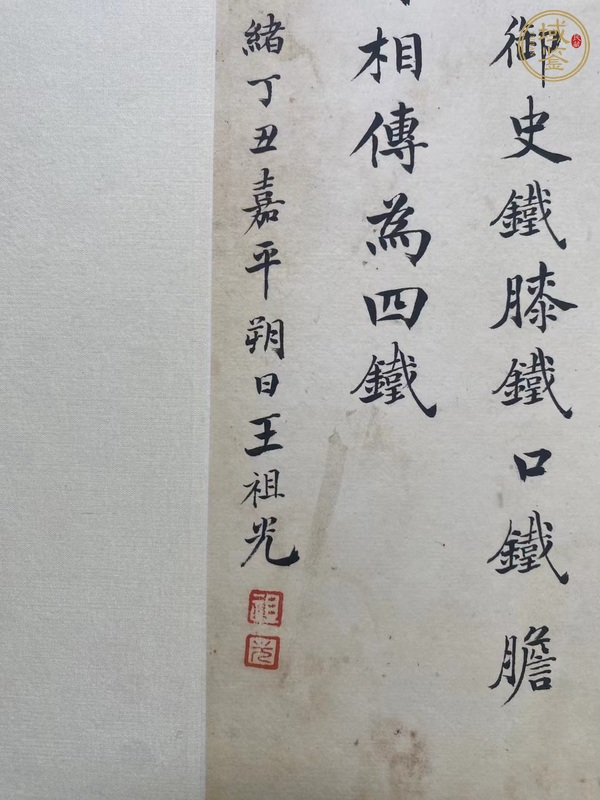 御史鐵膝鐵口鐵膽
相傳為四鐵
緒丁丑嘉平朔日王祖光
祖
光
域鑒